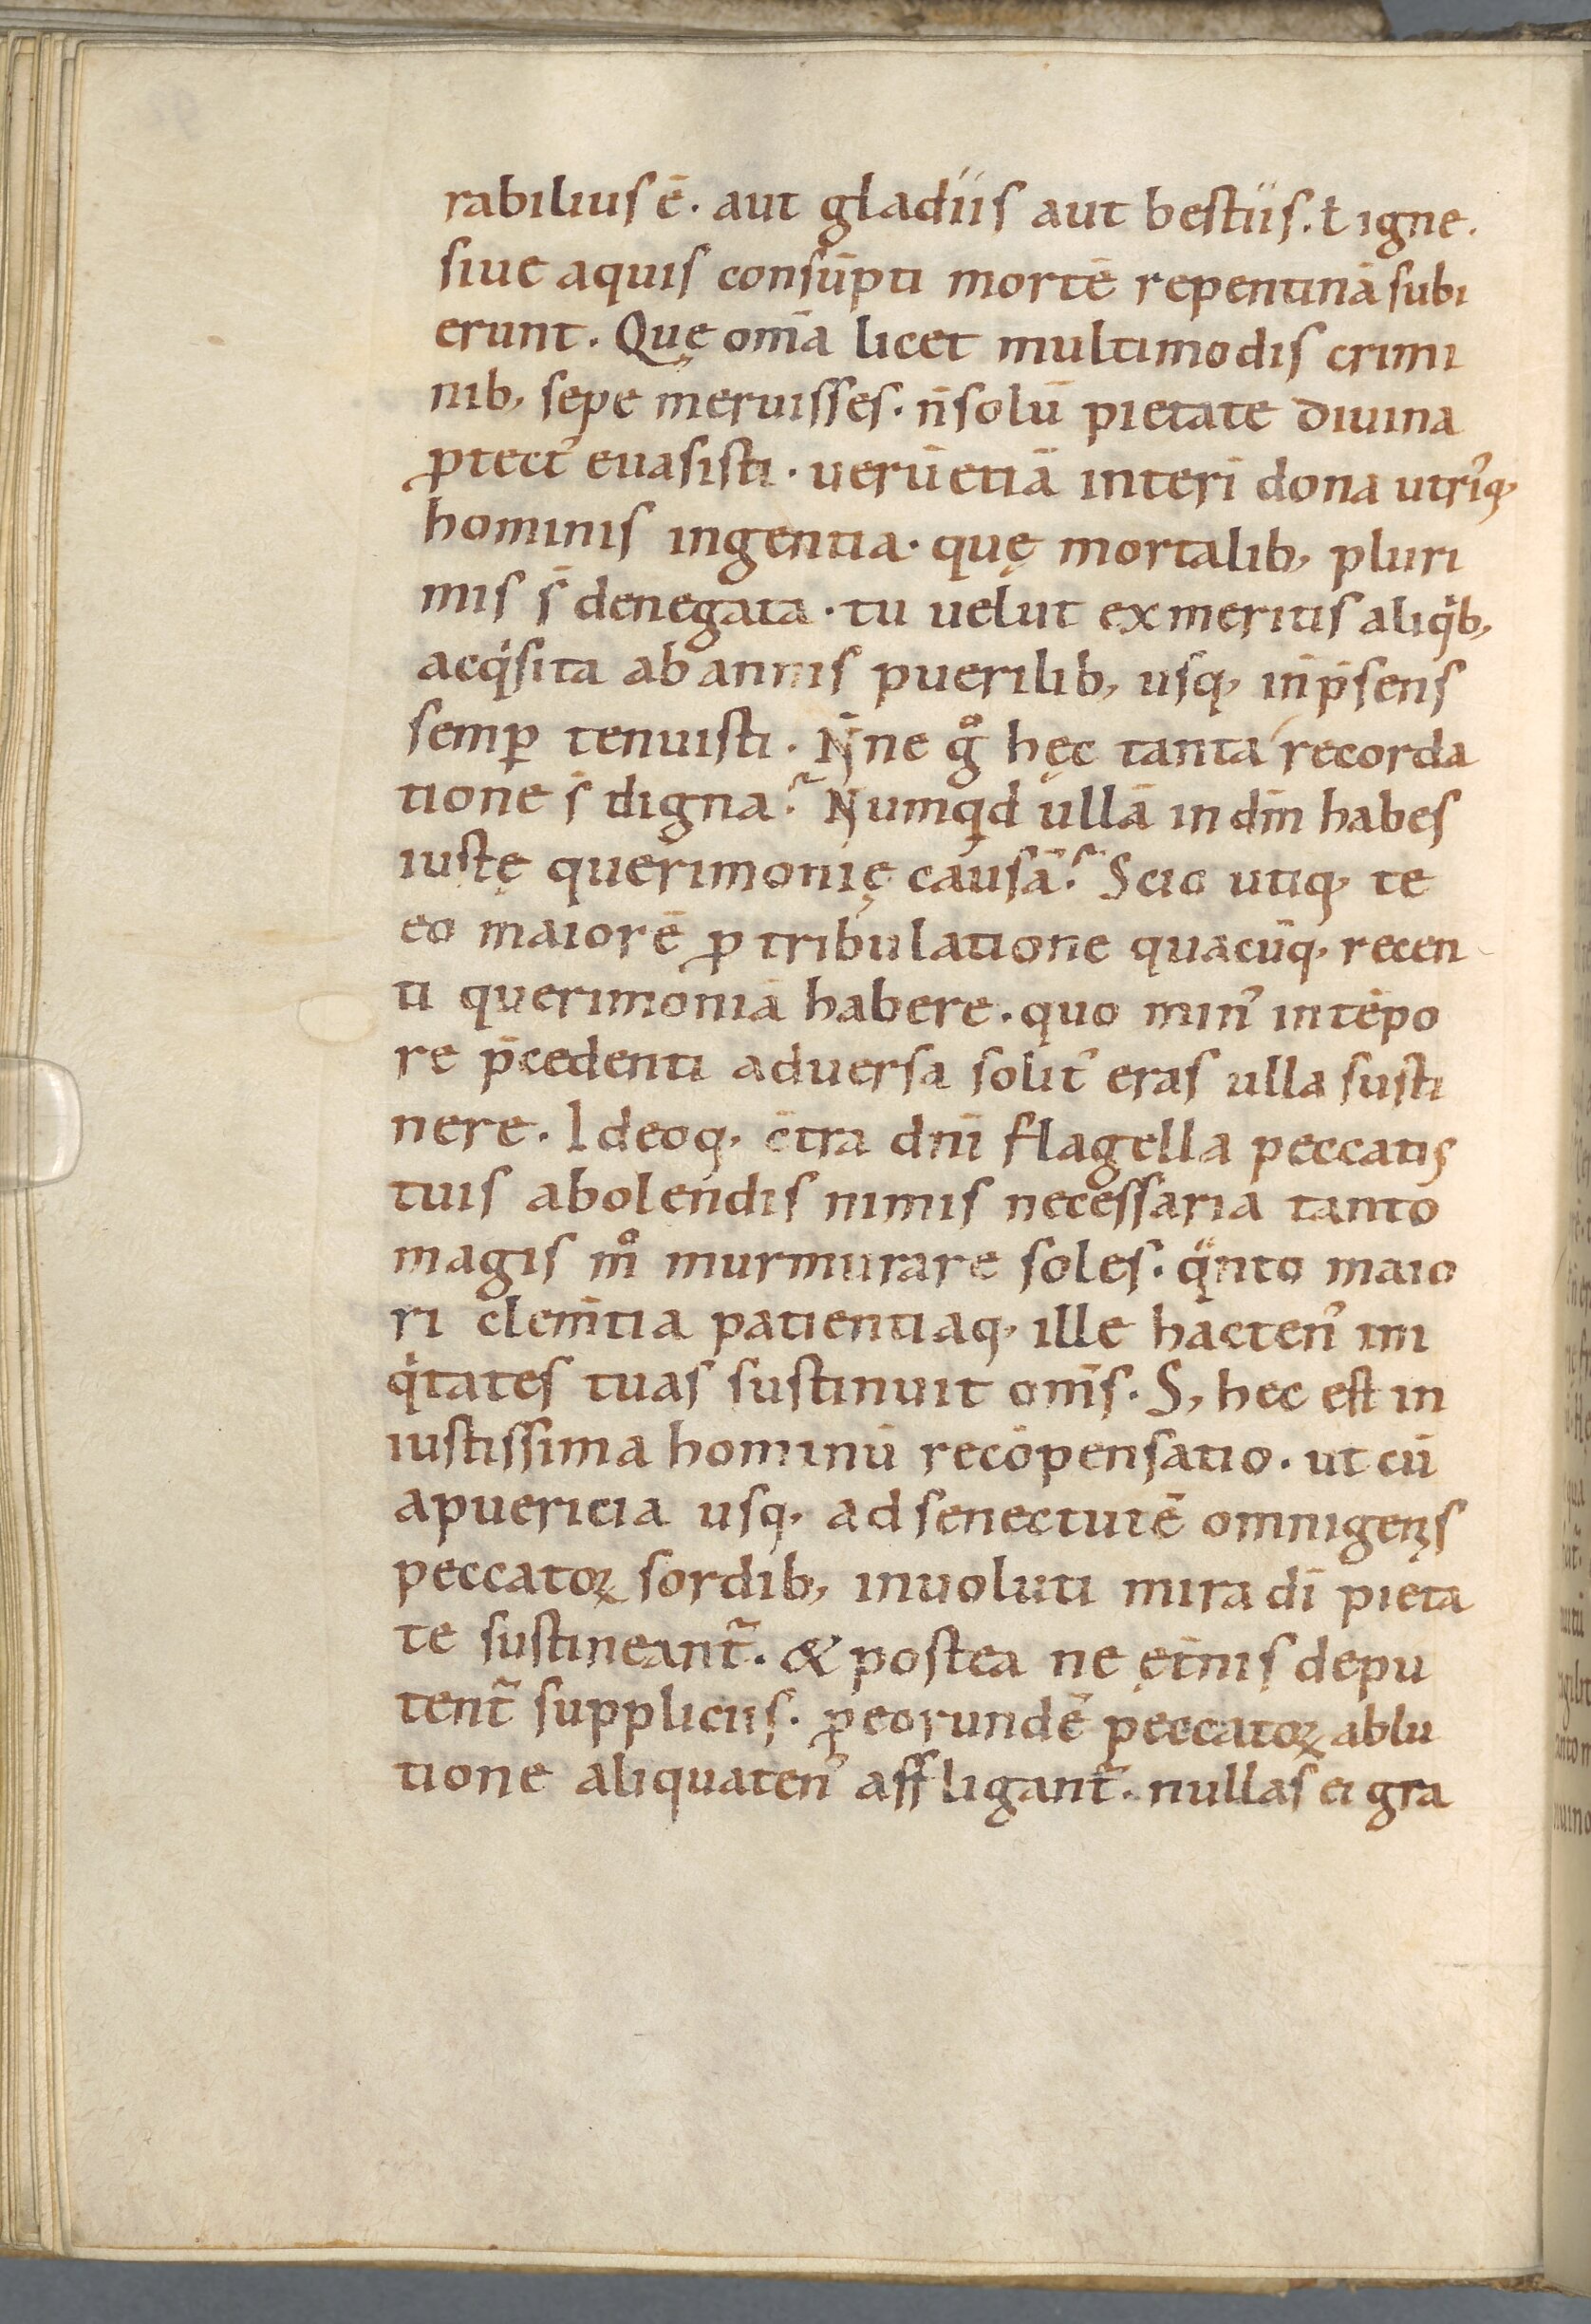 rabilius ē. aut gladiis aut bestiis. ł igne.
siue aquis consūpti mortē repentinā subi
erunt. Quę om̄a licet multimodis crimi
nib; sepe meruisses. n̄ solū pietate diuina
ꝓtectꝰ euasisti. uerū etiā interī dona utriꝰq;
hominis ingentia. quę mortalib; pluri
mis s̄ denegata. tu uelut ex meritis aliqͥb;
acqͥsita ab annis puerilib; usq; in p̄sens
semꝑ tenuisti. N̄ne gͦ hęc tanta recorda
tione s̄ digna? Numqͥd ullā in dm̄ habes
iustę querimonię causā? Scio utiq; te
eo maiorē ꝓ tribulatione quacūq; recen
ti querimoniā habere. quo minꝰ in tēpo
re p̄cedenti aduersa solitꝰ eras ulla susti
nere. Ideoq; c̄tra dn̄i flagella peccatis
tuis abolendis nimis necessaria tanto
magis mͦ murmurare soles. qͣnto maio
ri clem̄tia patientiaq; ille hactenꝰ ini
qͥtates tuas sustinuit om̄s. S; hec est in
iustissima hominū recōpensatio. ut cū
a puericia usq; ad senectutē omnigenis
peccatoꝝ sordib; inuoluti mira dī pieta
te sustineant᷑. & postea ne ęt̄nis depu
tent᷑ suppliciis. ꝓ eorundē peccatoꝝ ablu
tione aliquatenꝰ affligant᷑. nullas ei gra